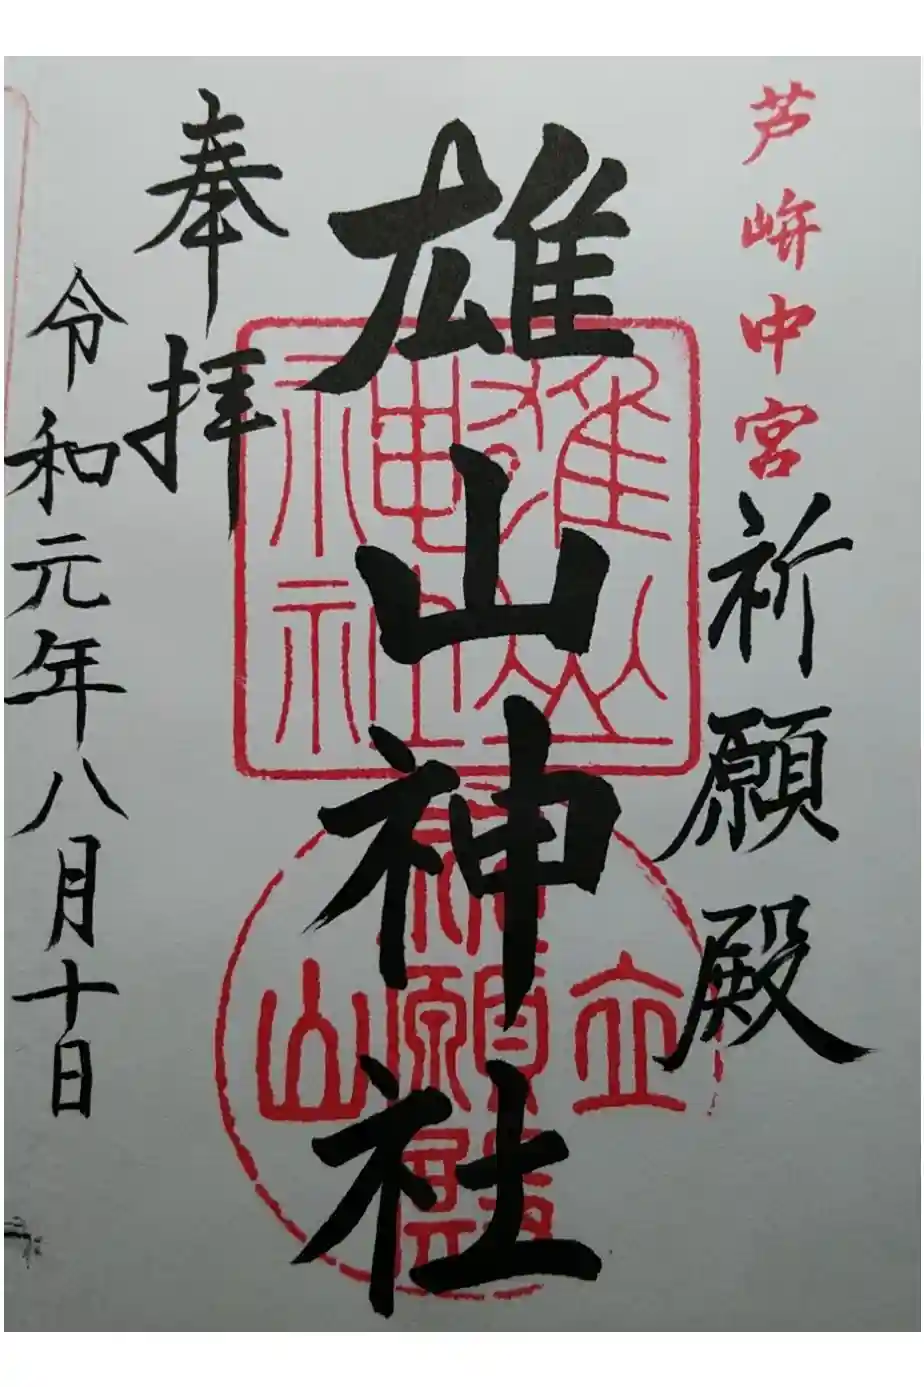 芦峅中宮祈願殿
雄山神社
奉拝
令和元年八月十日
雄山神社
立山
祈願殿